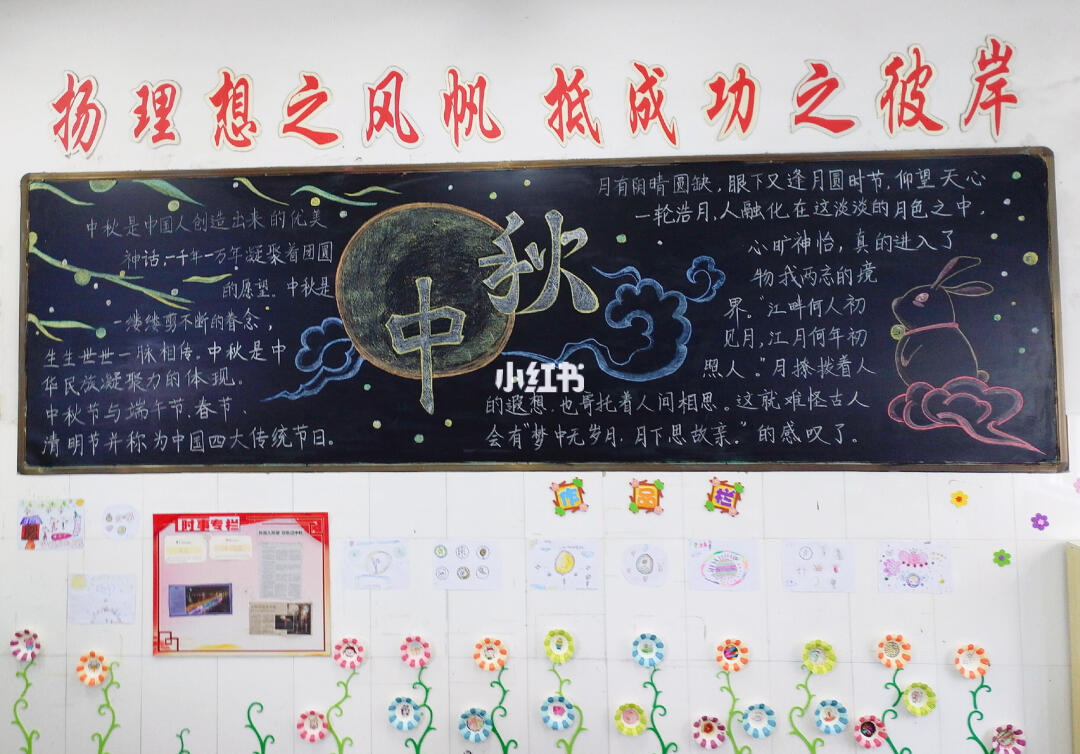 扬理想之风帆 抵成功之彼岸
中秋是中国人创造出来的优美
神话,一千年一万年凝聚着团圆
的愿望。中秋是
一缕缕剪不断的眷念，
生生世世一脉相传。中秋是中
华民族凝聚力的体现。
中秋节与端午节、春节、
清明节并称为中国四大传统节日。
中秋
小红书
月有阴晴圆缺，眼下又逢月圆时节，仰望天心
一轮浩月，人融化在这淡淡的月色之中，
心旷神怡，真的进入了
物我两忘的境
界。“江畔何人初
见月，江月何年初
照人。”月撩拨着人
的遐想，也寄托着人间相思。这就难怪古人
会有“梦中无岁月，月下思故亲。”的感叹了。
作品栏
时事专栏